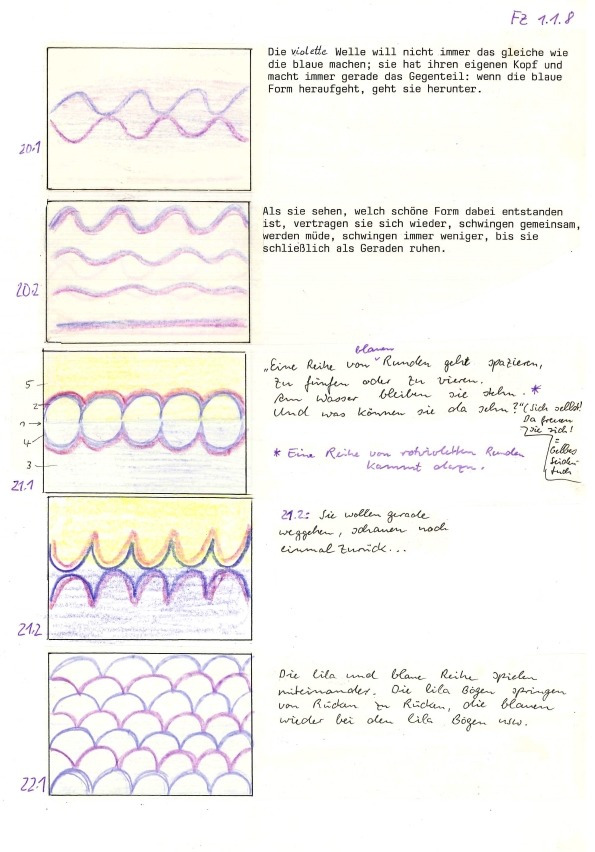 FZ 1.1.8
Die violette Welle will nicht immer das gleiche wie
die blaue machen; sie hat ihren eigenen Kopf und
macht immer gerade das Gegenteil: wenn die blaue
Form heraufgeht, geht sie herunter.
20.1
Als sie sehen, welch schöne Form dabei entstanden
ist, vertragen sie sich wieder, schwingen gemeinsam,
werden müde, schwingen immer weniger, bis sie
schließlich als Geraden ruhen.
20.2
blauen
„Eine Reihe von Runden geht spazieren,
zu fünfen oder zu vieren.
Am Wasser bleiben sie stehn. *
Und was können sie da sehn?" (Sich selbst!
Da freuen
sie sich!
=
Gelbes
Seiden-
tuch
* Eine Reihe von rotvioletten Runden
kommt dazu.
5
2
4
3
21.1
21.2: Sie wollen gerade
weggehen, schauen noch
einmal zurück...
21.2
Die lila und blaue Reihe spielen
miteinander. Die lila Bögen springen
von Rücken zu Rücken, die blauen
wieder bei den lila Bögen usw.
22.1